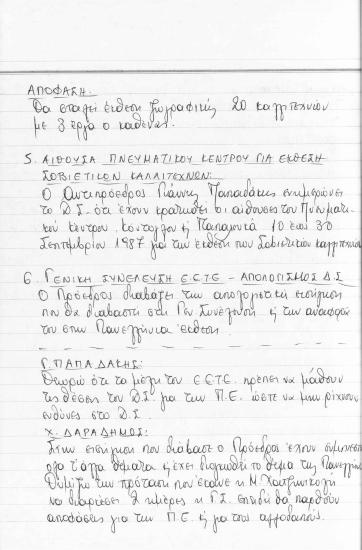 ΑΠΟΦΑΣΗ:
Θα σταλεί έκθεση ζωγραφικής 20 καλλιτεχνών
με 3 έργα ο καθένας.
5. ΑΙΘΟΥΣΑ ΠΝΕΥΜΑΤΙΚΟΥ ΚΕΝΤΡΟΥ ΓΙΑ ΕΚΘΕΣΗ
ΣΟΒΙΕΤΙΚΩΝ ΚΑΛΛΙΤΕΧΝΩΝ:
Ο Αντιπρόεδρος Γιάννης Παπαδάκης ενημερώνει
το Δ.Σ. ότι έχουν κρατηθεί οι αίθουσες του Πνευματι-
κού Κέντρου Κόντογλου ή Παπαλουκά 10 έως 30
Σεπτεμβρίου 1987 για την έκθεση των Σοβιετικών καλλιτεχνών
6. ΓΕΝΙΚΗ ΣΥΝΕΛΕΥΣΗ Ε.Ε.Τ.Ε - ΑΠΟΛΟΓΙΣΜΟΣ Δ.Σ
Ο Πρόεδρος διαβάζει την απολογιστική εισήγηση
που θα διαβαστεί στη Γεν. Συνέλευση ή την αναφορά
του στην Πανελλήνια έκθεση.
Γ. ΠΑΠΑΔΑΚΗΣ:
Θεωρώ ότι τα μέλη του Ε.Ε.Τ.Ε. πρέπει να μάθουν
τις θέσεις του Δ.Σ. για την Π.Ε. ώστε να μην ρίχνουν
ευθύνες στο Δ.Σ.
Χ. ΔΑΡΑΔΗΜΟΣ:
Στην εισήγηση που διάβασε ο Πρόεδρος έχουν
όλα τ' άλλα θέματα ή έχει διογκωθεί το θέμα της Πανελλήνιας
Θυμίζω την πρόταση που έκανε η Μ.
να διαρκέσει 2 ημέρες η Γ.Σ. επειδή θα παρθούν
αποφάσεις για την Π.Ε ή για τους αλλοδαπούς.